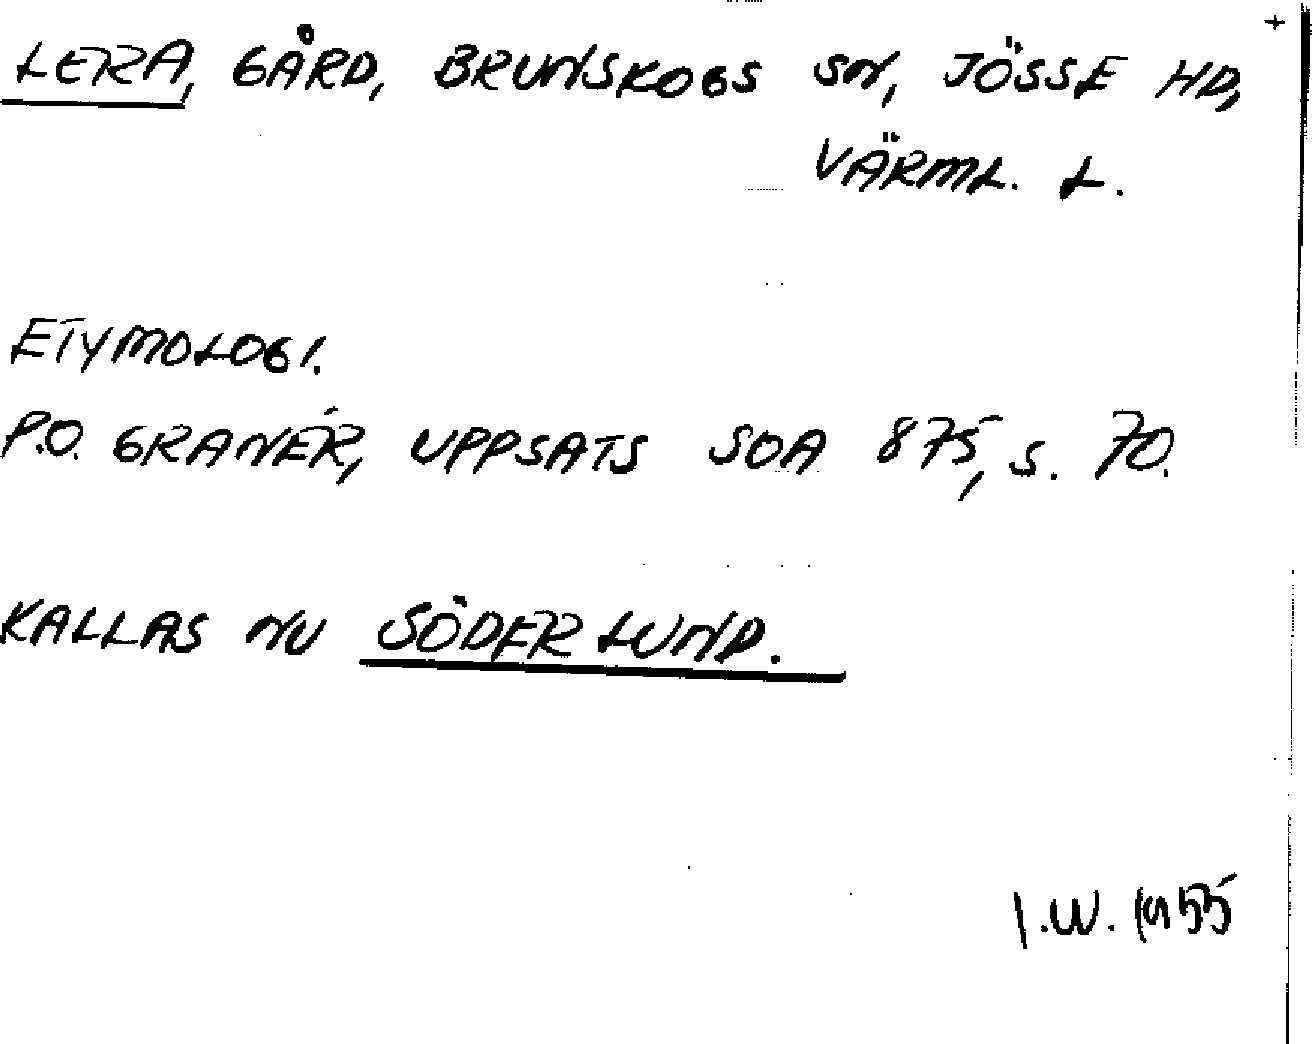 LERA, GÅRD, BRUNSKOGS SN, JÖSSE HD,
VÄRML. L.
ETYMOLOGI.
P.O. GRANÉR, UPPSATS SOA 875, S. 70.
KALLAS NU SÖDER LUND.
I.W. 1955